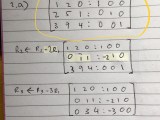 1 2 0 : 1 0 0
2 5 1 : 0 1 0
3 9 4 : 0 0 1
R₂ ← R₂ - 2R₁
1 2 0 : 1 0 0
0 1 1 : -2 1 0
3 9 4 : 0 0 1
R₃ ← R₃ - 3R₁
1 2 0 : 1 0 0
0 1 1 : -2 1 0
0 3 4 : -3 0 0